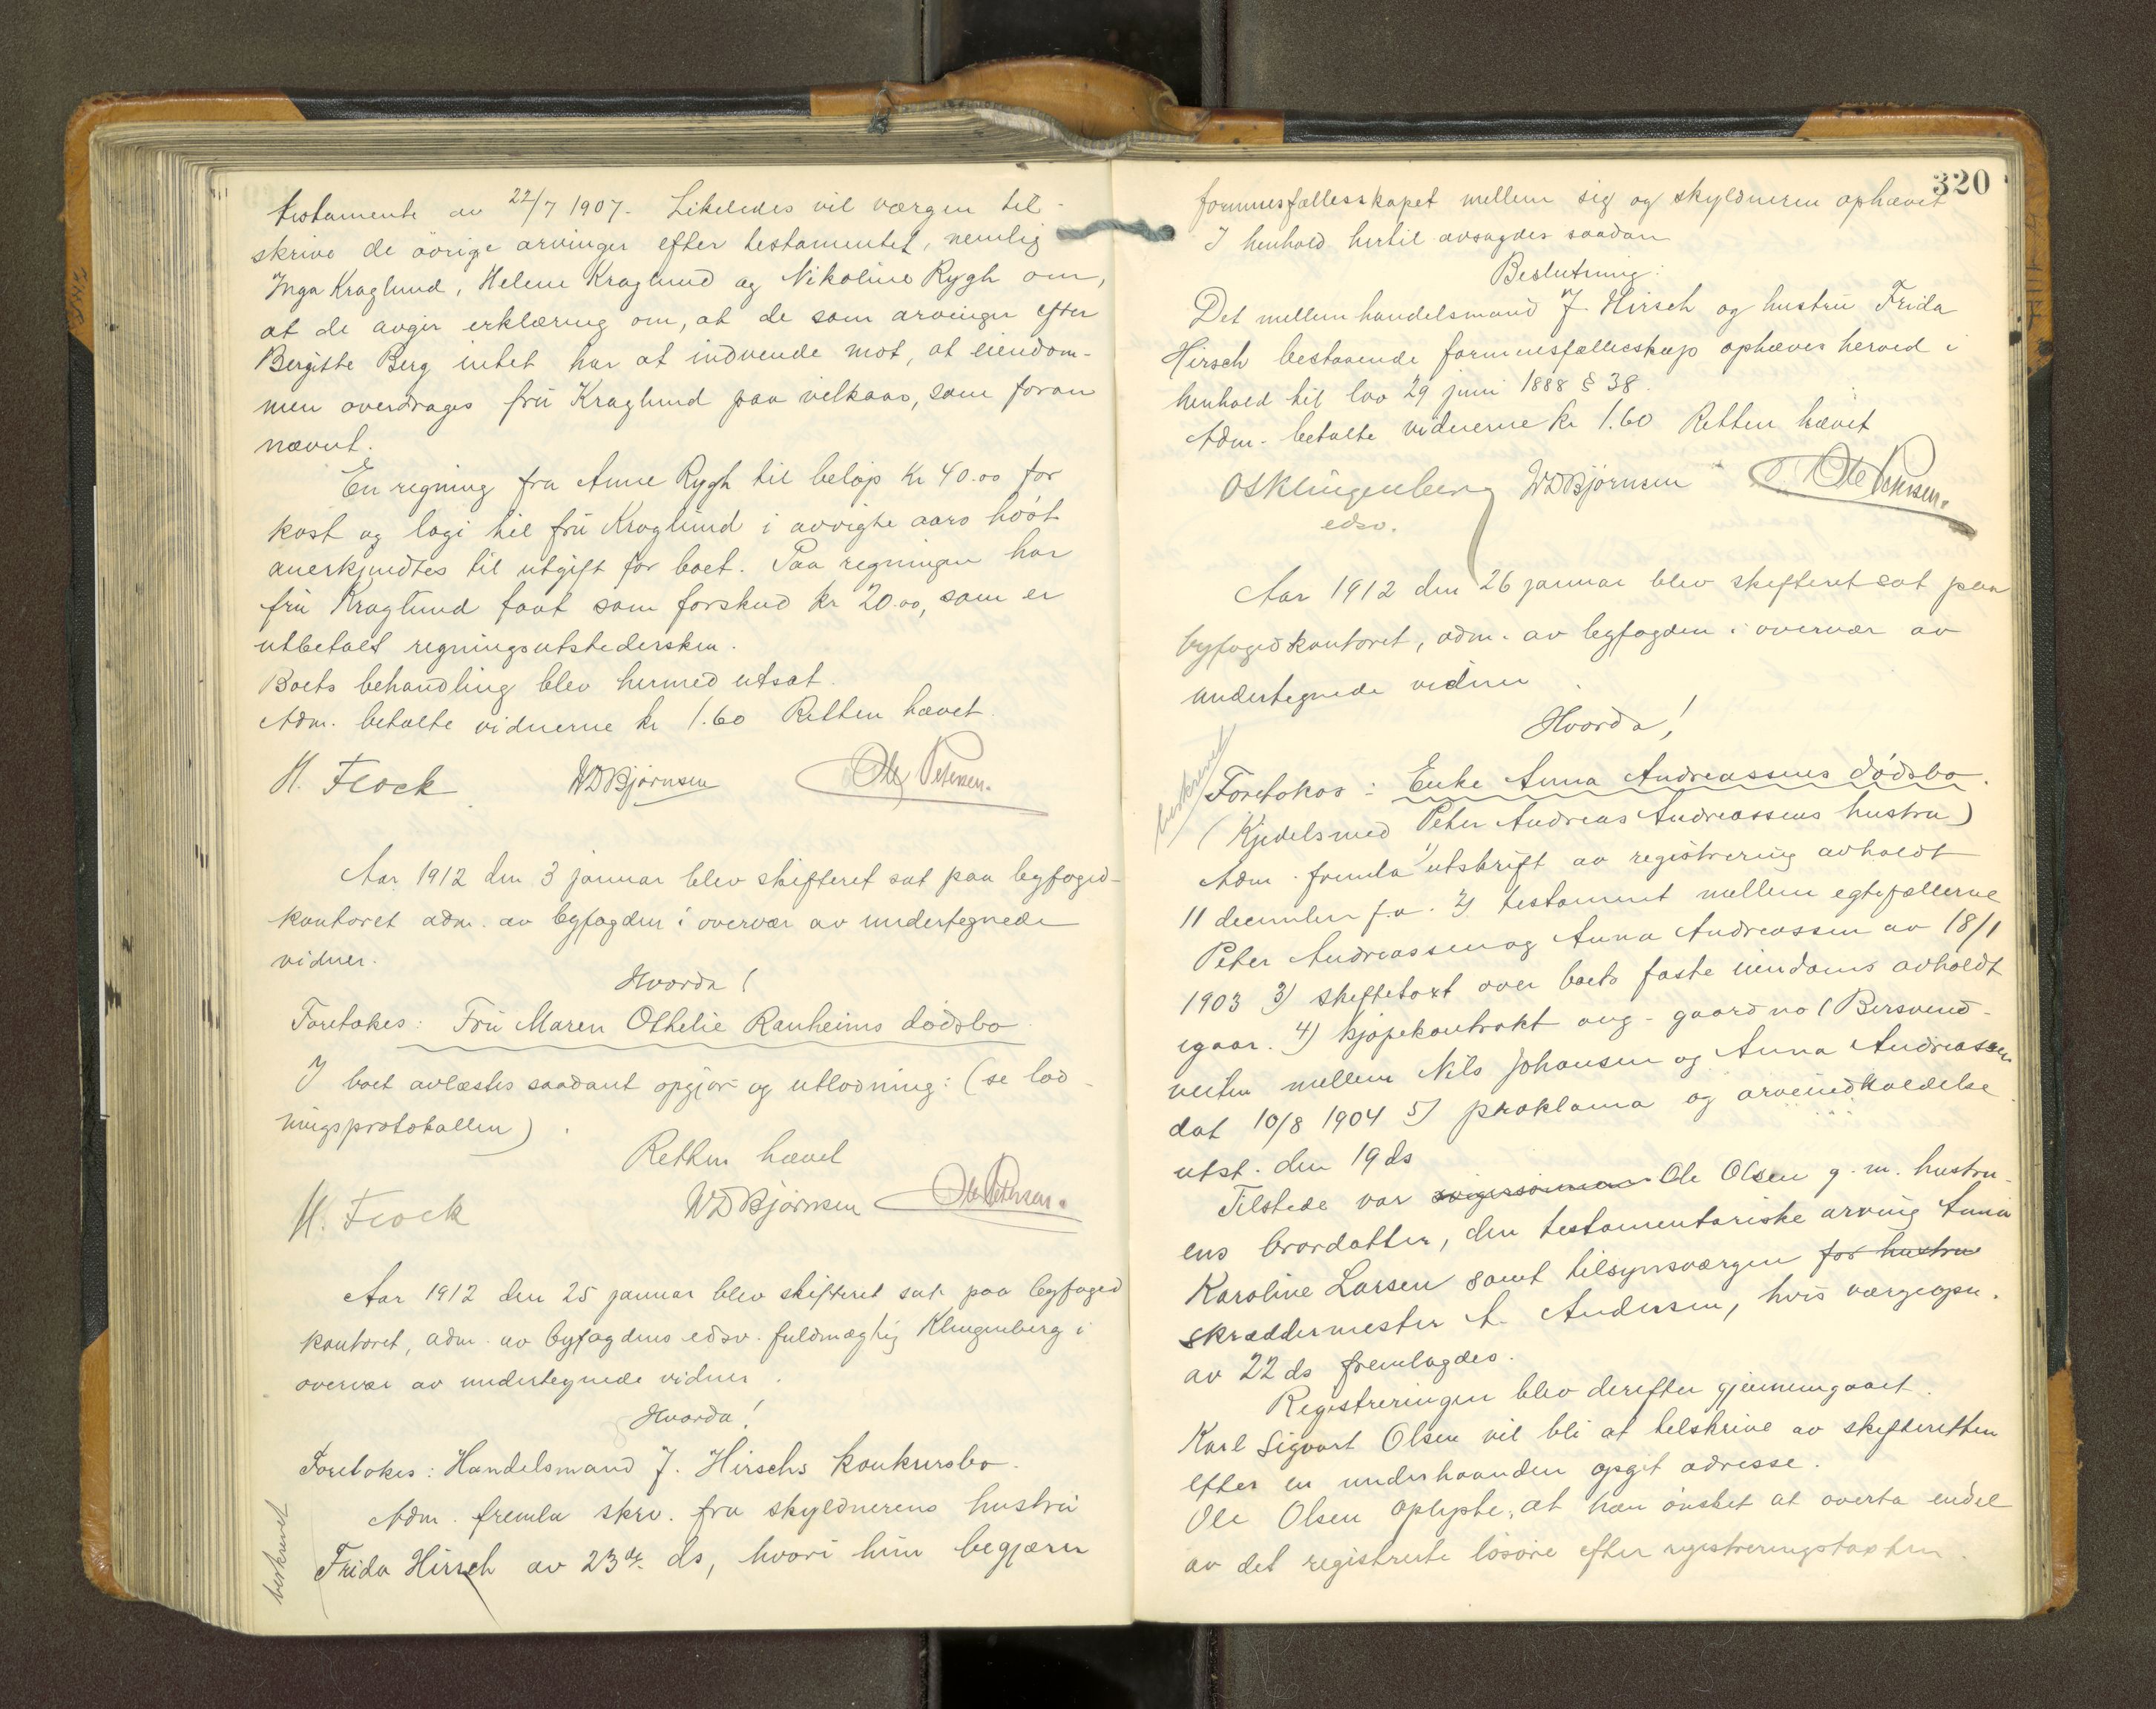 testamente av 22/7 1907. Likeledes vil værgen til-
skrive de øvrige arvinger efter testamentet, nemlig
Inga Kraglund, Helene Kraglund og Nikoline Rygh om,
at de avgir erklæring om, at de som arvinger efter
Bergitte Berg intet har at indvende mot, at eiendom-
men overdrages frú Kraglund paa vilkaar, som foran
nævnt.
En regning fra Anne Rygh til beløp kr 40.00 for
kost og logi til frú Kraglund i avvigte aars høst
anerkjendtes til utgift for boet. Paa regningen har
frú Kraglund faat som forskud kr 20.00, som er
utbetalt regningsutstedersken.
Boets behandling blev hermed utsat.
Adm. betalte vidnerne kr 1.60 Retten hævet
H. Flock WDBjørnsen Ole Petersen.
Aar 1912 den 3 januar blev skifteret sat paa byfoged-
kontoret adm. av byfogden i overvær av undertegnede
vidner.
Hvorda!
Foretokes: Frú Maren Othelie Ranheims dødsbo
I boet avlæstes saadant opgjør og utlodning: (se lod-
ningsprotokollen).
Retten hævet
H. Flock WDBjørnsen Ole Petersen.
Aar 1912 den 25 januar blev skifteret sat paa byfoged
kontoret, adm. av byfogdens edsv. fuldmægtig Klingenberg i
overvær av undertegnede vidner.
Hvorda!
Foretokes: Handelsmand J. Hirschs konkursbo.
Adm. fremla skrv. fra skyldnerens hustrú
beskrevet
Frida Hirsch av 23de ds, hvori hún begjærer
320
formuesfællesskapet mellem sig og skyldneren ophævet
I henhold hertil avsagdes saadan
Beslutning:
Det mellem handelsmand J. Hirsch og hustrú Frida
Hirsch bestaaende formuesfællesskap ophæves herved i
henhold til lov 29 juni 1888 § 38.
Adm. betalte vidnerne kr 1.60 Retten hævet
OSKlingenberg WDBjørnsen Ole Petersen.
edsv.
Aar 1912 den 26 januar blev skifteret sat paa
byfogedkontoret, adm. av byfogden i overvær av
undertegnede vidner.
Hvorda!
beskrevet
Foretokes: Enke Anna Andreassens dødsbo.
(Kjedelsmed Peter Andreas Andreassens hustru)
Adm. fremla 1) utskrift av registrering avholdt
11 december f.a. 2) testament mellem egtefællerne
Peter Andreassen og Anna Andreassen av 18/1
1903 3) skiftetaxt over boets faste eiendoms avholdt
igaar. 4) kjøpekontrakt ang. gaard no 1 Bersvend-
veiten mellem Nils Johansen og Anna Andreassen
dat 10/8 1904 5) proklama og arveindkaldelse
utst. den 19 ds
Tilstede var svigersønnen Ole Olsen g. m. hustru-
ens brordatter, den testamentariske arving Anna
Karoline Larsen samt tilsynsværgen for hustru
skræddermester A. Andersen, hvis værgeopn.
av 22 ds fremlagdes.
Registreringen blev derefter gjennemgaaet.
Karl Sigvart Olsen vil bli at tilskrive av skifteretten
efter en underhaanden opgit adresse.
Ole Olsen oplyste, at han ønsket at overta endel
av det registrerte løsøre efter registreringstaxten.